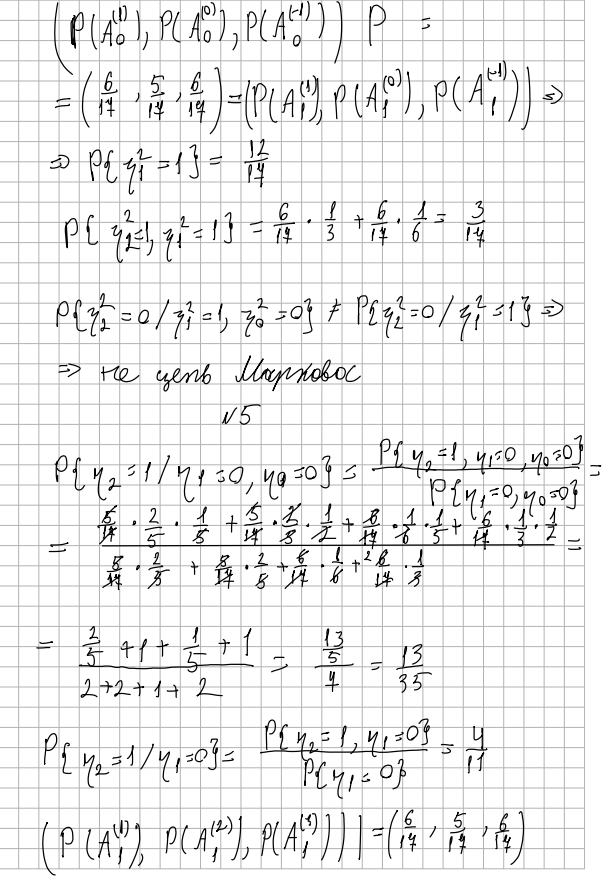 (P(A₀⁽¹⁾), P(A₀⁽⁰⁾), P(A₀⁽⁻¹⁾)) P =
= (6/17, 5/17, 6/17) = (P(A₁⁽¹⁾), P(A₁⁽⁰⁾), P(A₁⁽⁻¹⁾)) ⇒
⇒ P{η₁² = 1} = 12/17
P{η₂² = 1, η₁² = 1} = 6/17 · 1/3 + 6/17 · 1/6 = 3/17
P{η₂² = 0 / η₁² = 1, η₀² = 0} ≠ P{η₂² = 0 / η₁² = 1} ⇒
⇒ не цепь Маркова
N5
P{η₂ = 1 / η₁ = 0, η₀ = 0} = P{η₂ = 1, η₁ = 0, η₀ = 0} / P{η₁ = 0, η₀ = 0} =
= (5/17 · 2/5 · 1/5 + 5/17 · 2/5 · 1/2 + 6/17 · 1/6 · 1/5 + 6/17 · 1/3 · 1/2) / (5/17 · 2/5 + 5/17 · 2/5 + 6/17 · 1/6 + 6/17 · 1/3) =
= (2/5 + 1 + 1/5 + 1) / (2 + 2 + 1 + 2) = (13/5) / 7 = 13/35
P{η₂ = 1 / η₁ = 0} = P{η₂ = 1, η₁ = 0} / P{η₁ = 0} = 4/11
(P(A₁⁽¹⁾), P(A₁⁽²⁾), P(A₁⁽³⁾)) = (6/17, 5/17, 6/17)